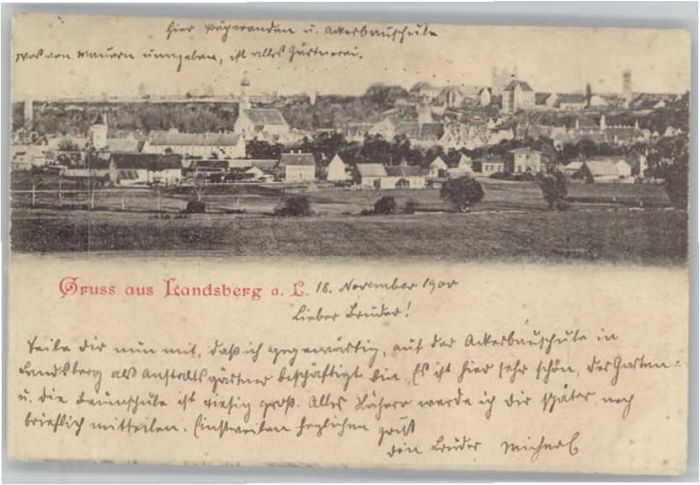 Hier Pägeranden u. Ackerbauschule
was von Mauern umgeben, ist alles Gärtnerei.
Gruss aus Landsberg a. L. 18. November 1900
Lieber Bruder!
Teile Dir nun mit, daß ich gegenwärtig, auf der Ackerbauschule in
Landsberg als Anstaltsgärtner beschäftigt bin. Es ist hier sehr schön, der Garten
u. die Baumschule ist riesig groß. Alles Nähere werde ich dir später noch
brieflich mitteilen. Einstweilen herzlichen Gruß
dein Bruder Michael